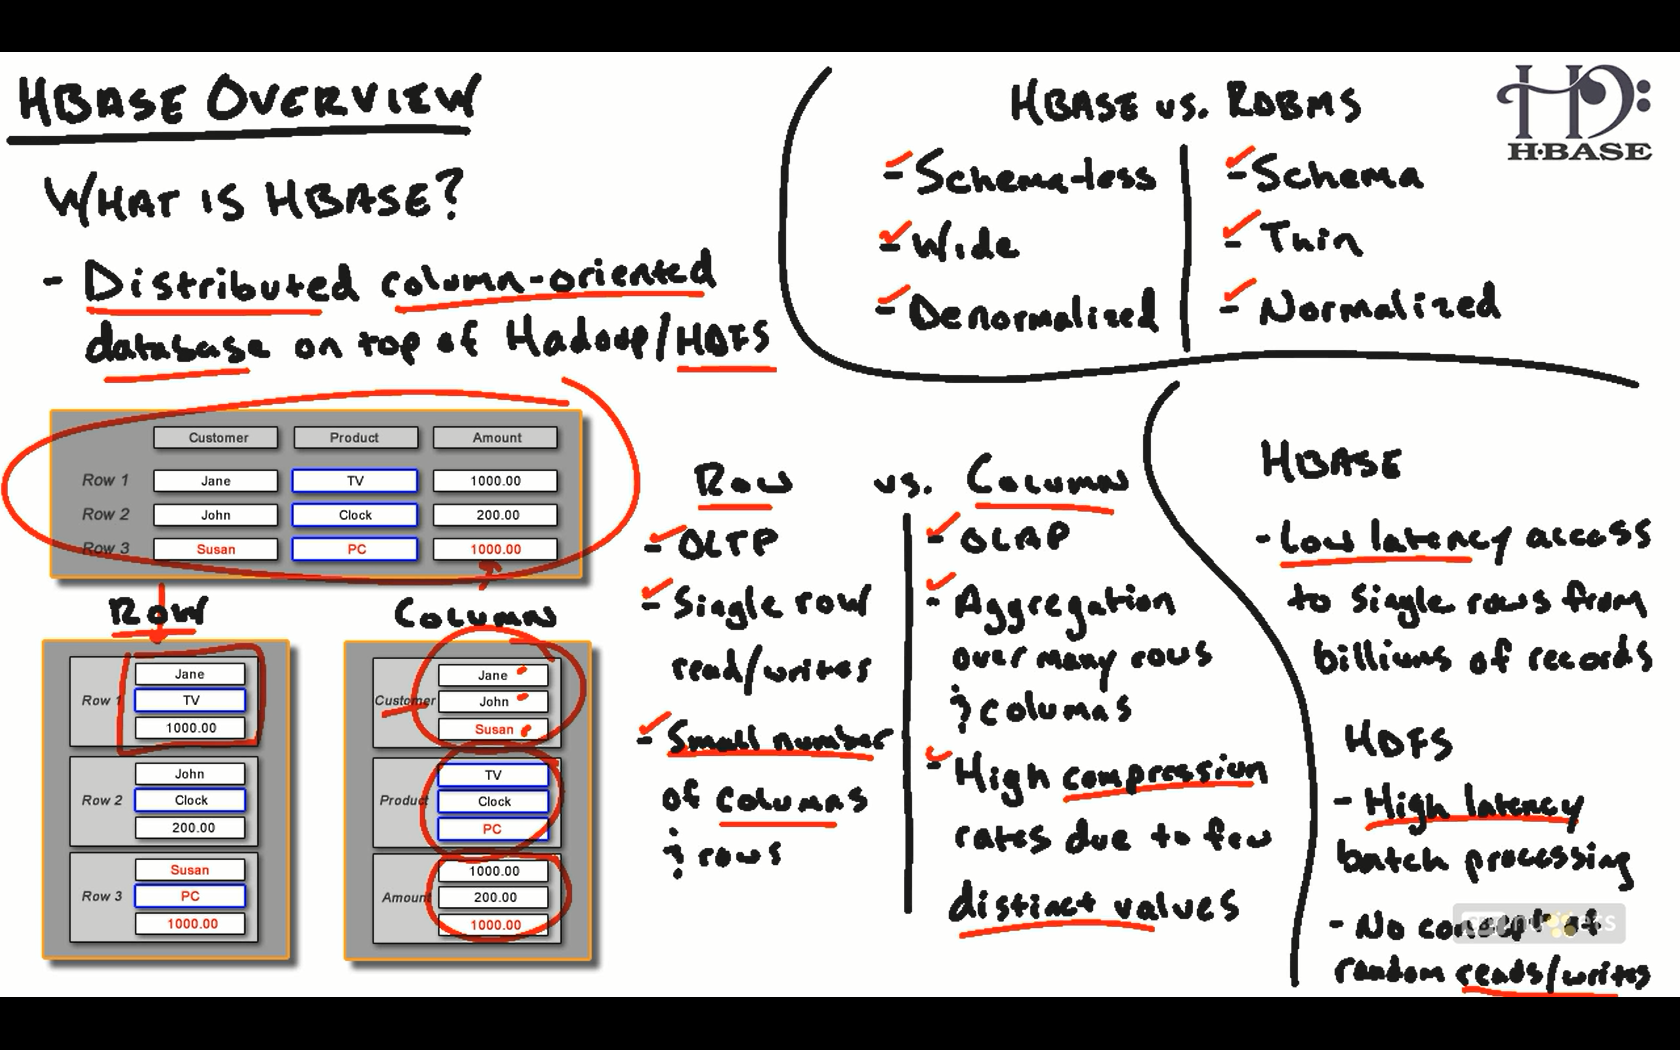 HBASE OVERVIEW
WHAT IS HBASE?
- Distributed column-oriented
database on top of Hadoop/HDFS
Customer Product Amount
Row 1 Jane TV 1000.00
Row 2 John Clock 200.00
Row 3 Susan PC 1000.00
ROW
Row 1
Jane
TV
1000.00
Row 2
John
Clock
200.00
Row 3
Susan
PC
1000.00
COLUMN
Customer
Jane
John
Susan
Product
TV
Clock
PC
Amount
1000.00
200.00
1000.00
HBASE vs. RDBMS
- Schema-less
- Wide
- Denormalized
- Schema
- Thin
- Normalized
H·BASE
ROW vs. COLUMN
- OLTP
- Single row
read/writes
- Small number
of columns
& rows
- OLAP
- Aggregation
over many rows
& columns
- High compression
rates due to few
distinct values
HBASE
- Low latency access
to single rows from
billions of records
HDFS
- High latency
batch processing
- No concept of
random reads/writes